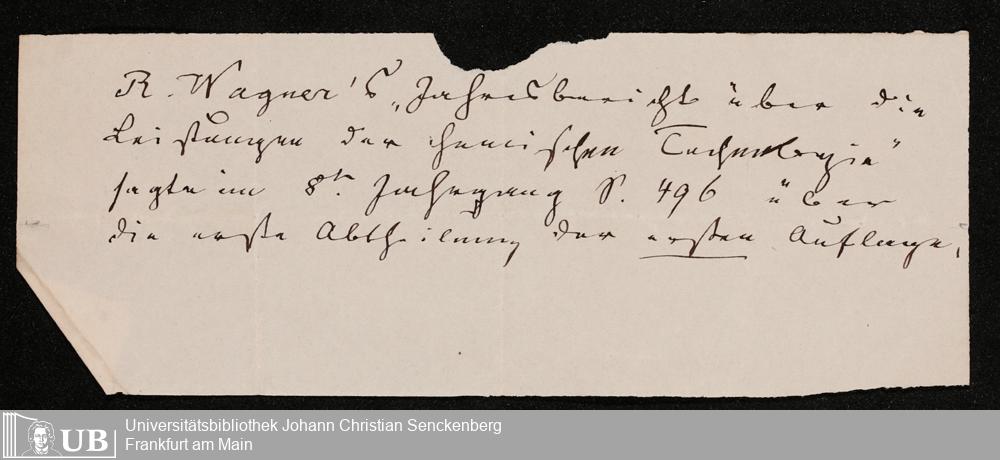 R. Wagner's „Jahresbericht über die
Leistungen der chemischen Technologie"
sagte im 8tn. Jahrgang S. 496 über
die erste Abtheilung der ersten Auflage,
UB
Universitätsbibliothek Johann Christian Senckenberg
Frankfurt am Main